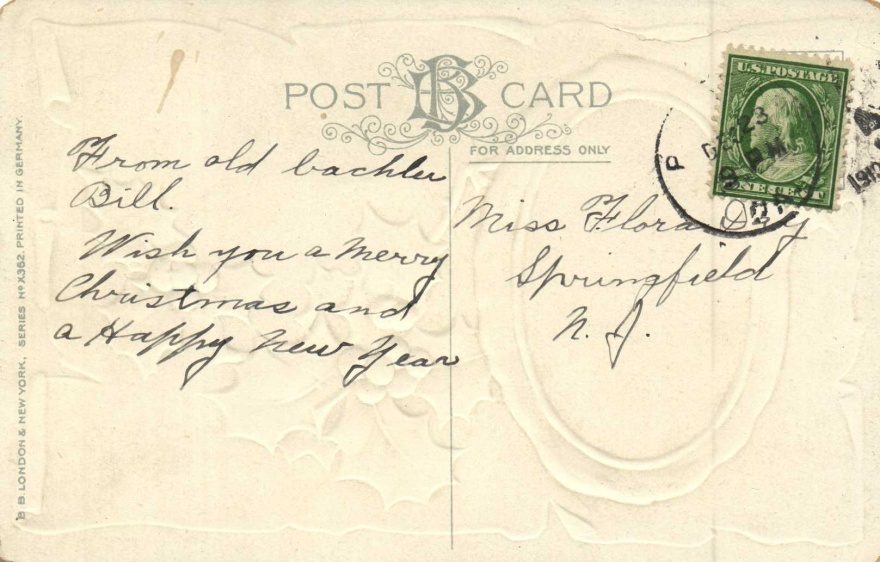 POST CARD
FOR ADDRESS ONLY
From old bachler
Bill.
Wish you a Merry
Christmas and
a Happy New Year
Miss Flora
Springfield
N. J.
U.S. POSTAGE
ONE CENT
DEC 23
PM
1910
B B LONDON & NEW YORK, SERIES No X362. PRINTED IN GERMANY.